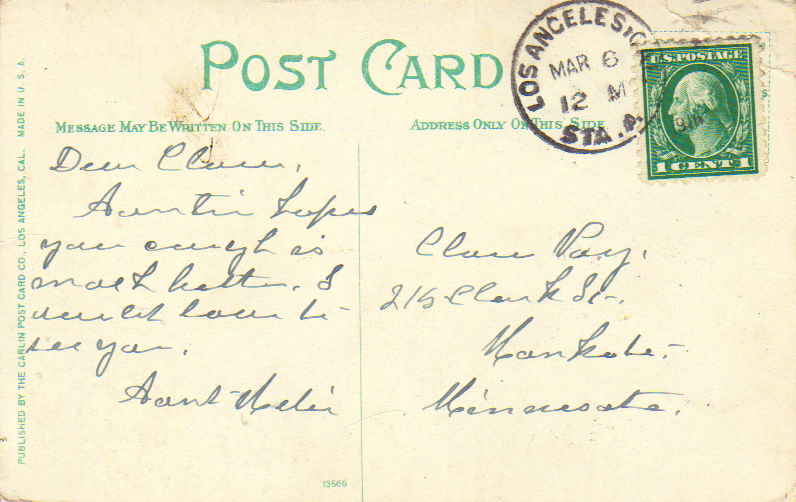 POST CARD
LOS ANGELES, C
MAR 6
12 M
STA. P.
U.S. POSTAGE
1 CENT 1
MESSAGE MAY BE WRITTEN ON THIS SIDE.
ADDRESS ONLY ON THIS SIDE
Dear
Auntie hopes
your cough is
much better. I
would love to
see you.
Aunt
215 Clark St.
Mankato
Minnesota.
PUBLISHED BY THE CARLIN POST CARD CO., LOS ANGELES, CAL. MADE IN U.S.A.
13566